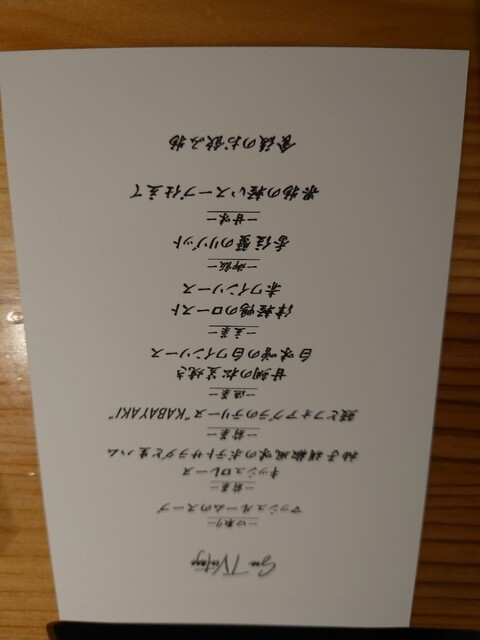 一口取り一
マッシュルームのスープ
一前菜一
キッシュロレーヌ
柚子胡椒風味のポテトサラダと生ハム
一前菜一
鰻とフォアグラのテリーヌ"KABAYAKI"
一温菜一
甘鯛の松笠焼き
白味噌の白ワインソース
一主菜一
津軽鴨のロースト
赤ワインソース
一御飯一
香住蟹のリゾット
一甘味一
果物の軽いスープ仕立て
食後のお飲み物